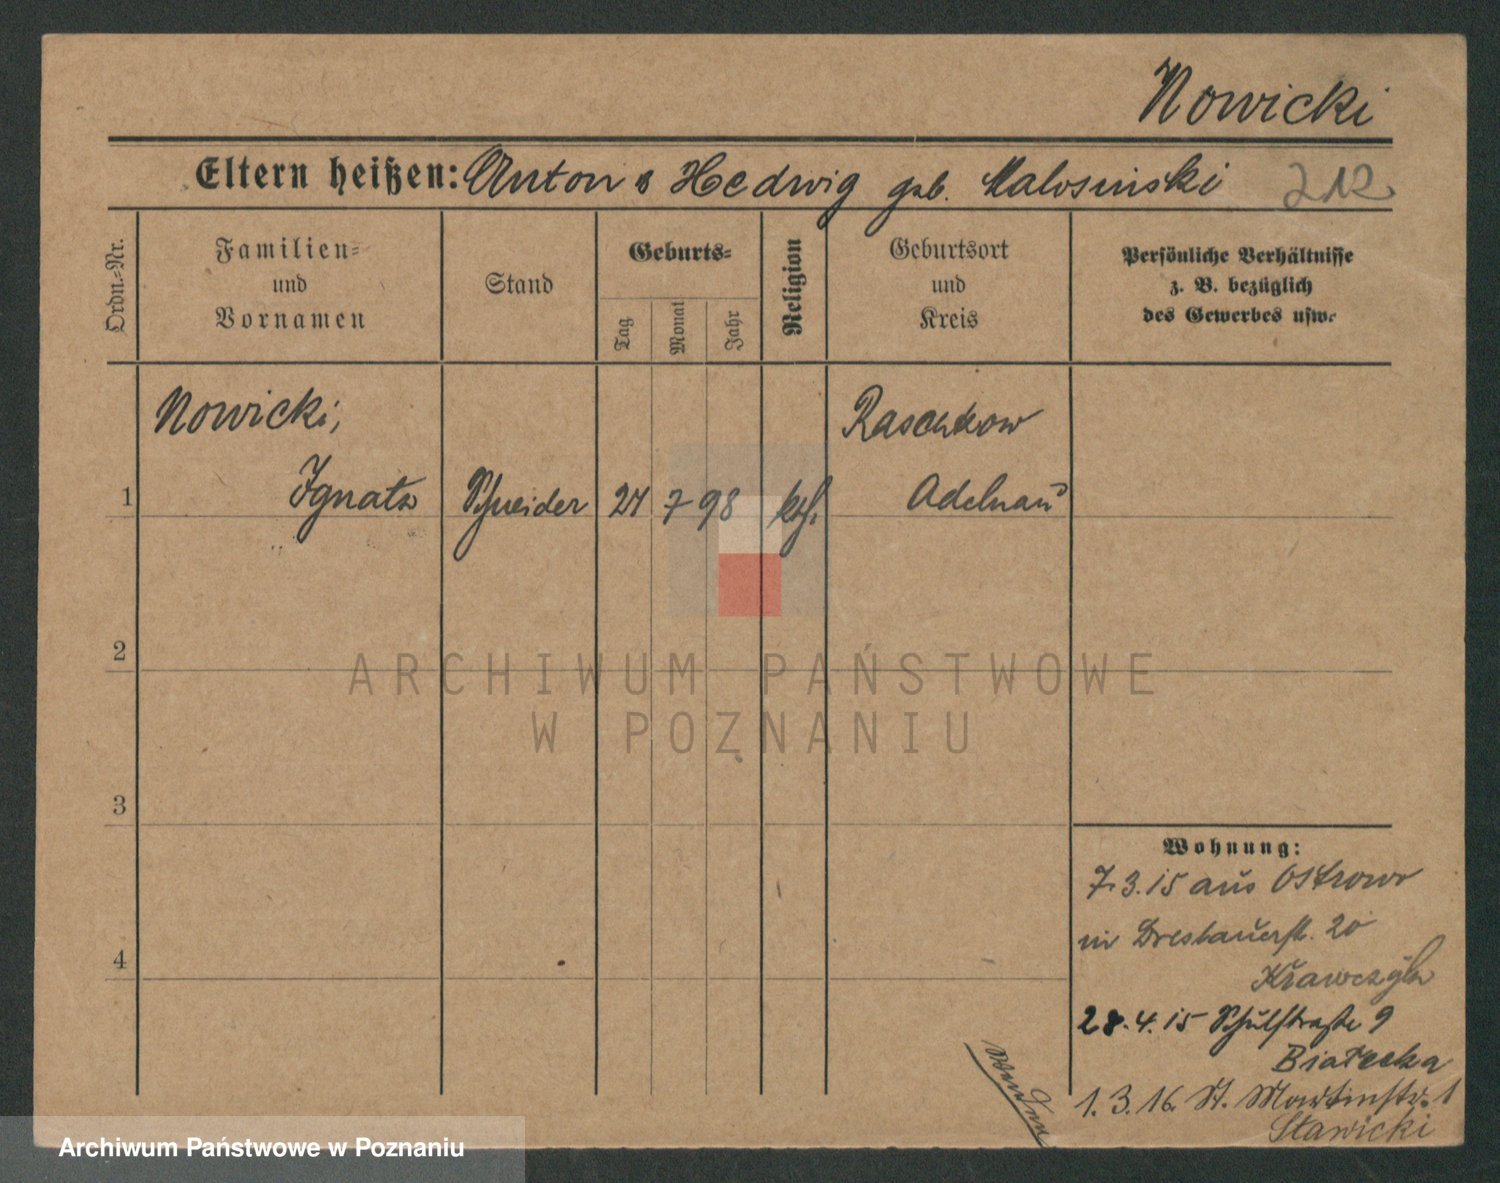 Nowicki
Eltern heißen: Anton & Hedwig geb. Malosinski 212
Ordn.-Nr.
Familien-
und
Vornamen
Stand
Geburts-
Tag
Monat
Jahr
Religion
Geburtsort
und
Kreis
Persönliche Verhältnisse
z. B. bezüglich
des Gewerbes usw.
Nowicki,
Raschkow
1 Ignatz Schneider 24 7 98 kth. Adelnau
2
3
4
ARCHIWUM PAŃSTWOWE
W POZNANIU
Wohnung:
7.3.15 aus Ostrowo
in 20
Krawczyk
28.4.15 Schulstraße 9
Białecka
1.3.16. St. Martinstr. 1
Stawicki
wenden
Archiwum Państwowe w Poznaniu